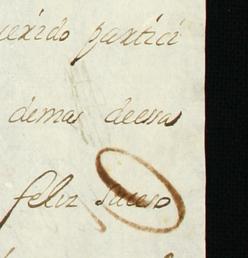 uexido partici
demas deesa
feliz suceso